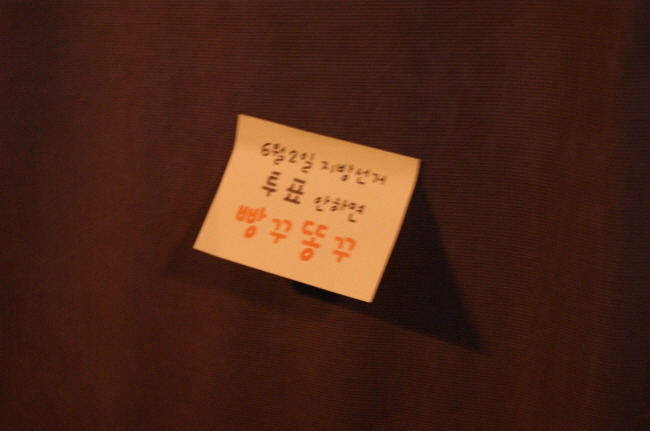 6월2일 지방선거
투표 안하면
빵꾸똥꾸